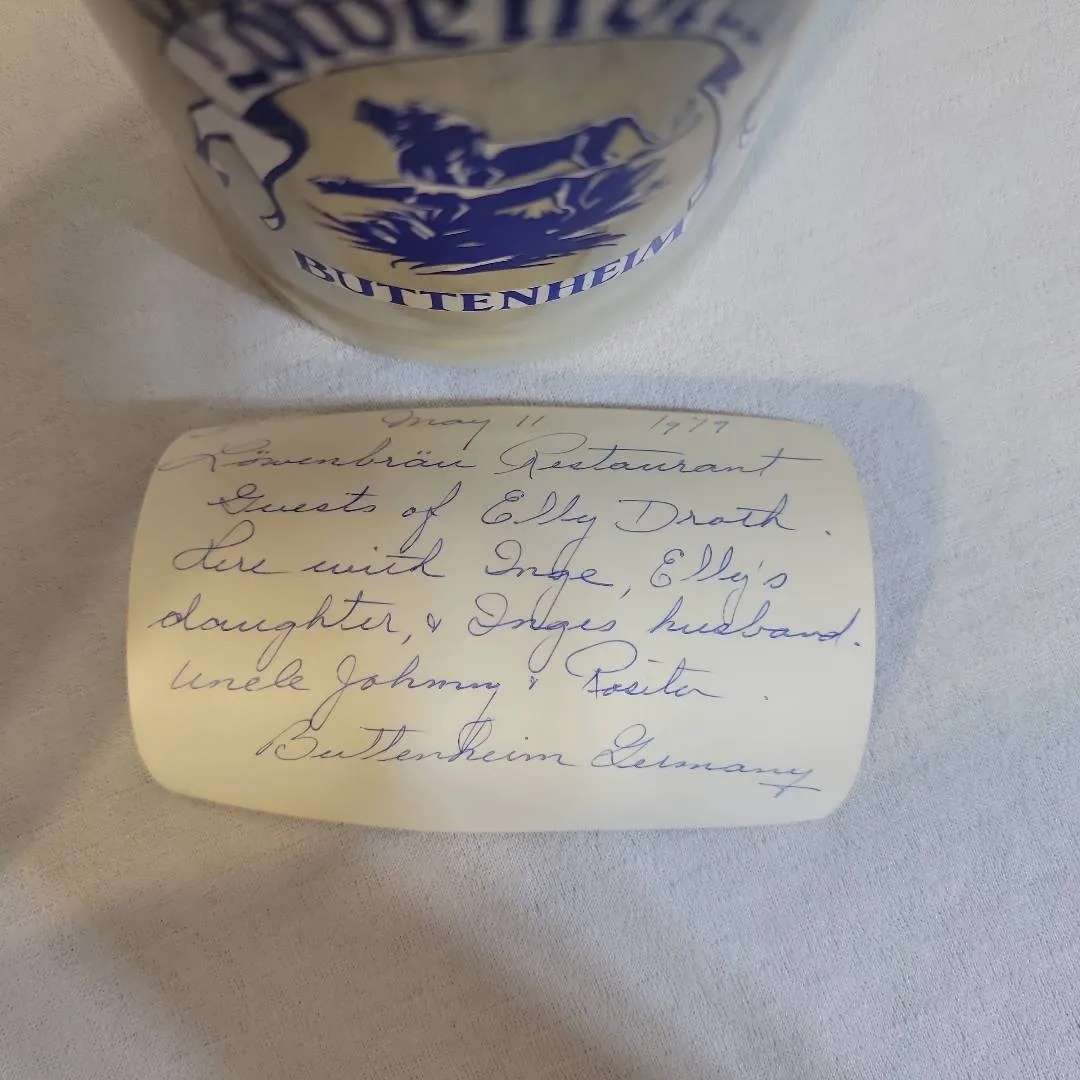 Löwenbräu
BUTTENHEIM
May 11 1979
Löwenbräu Restaurant
Guests of Elly Droth.
Here with Inge, Elly's
daughter, & Inges husband.
Uncle Johnny & Rosita.
Buttenheim Germany